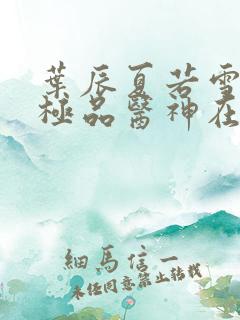 葉辰夏若雪
極品醫神在
細馬信一
未经同意禁止转载